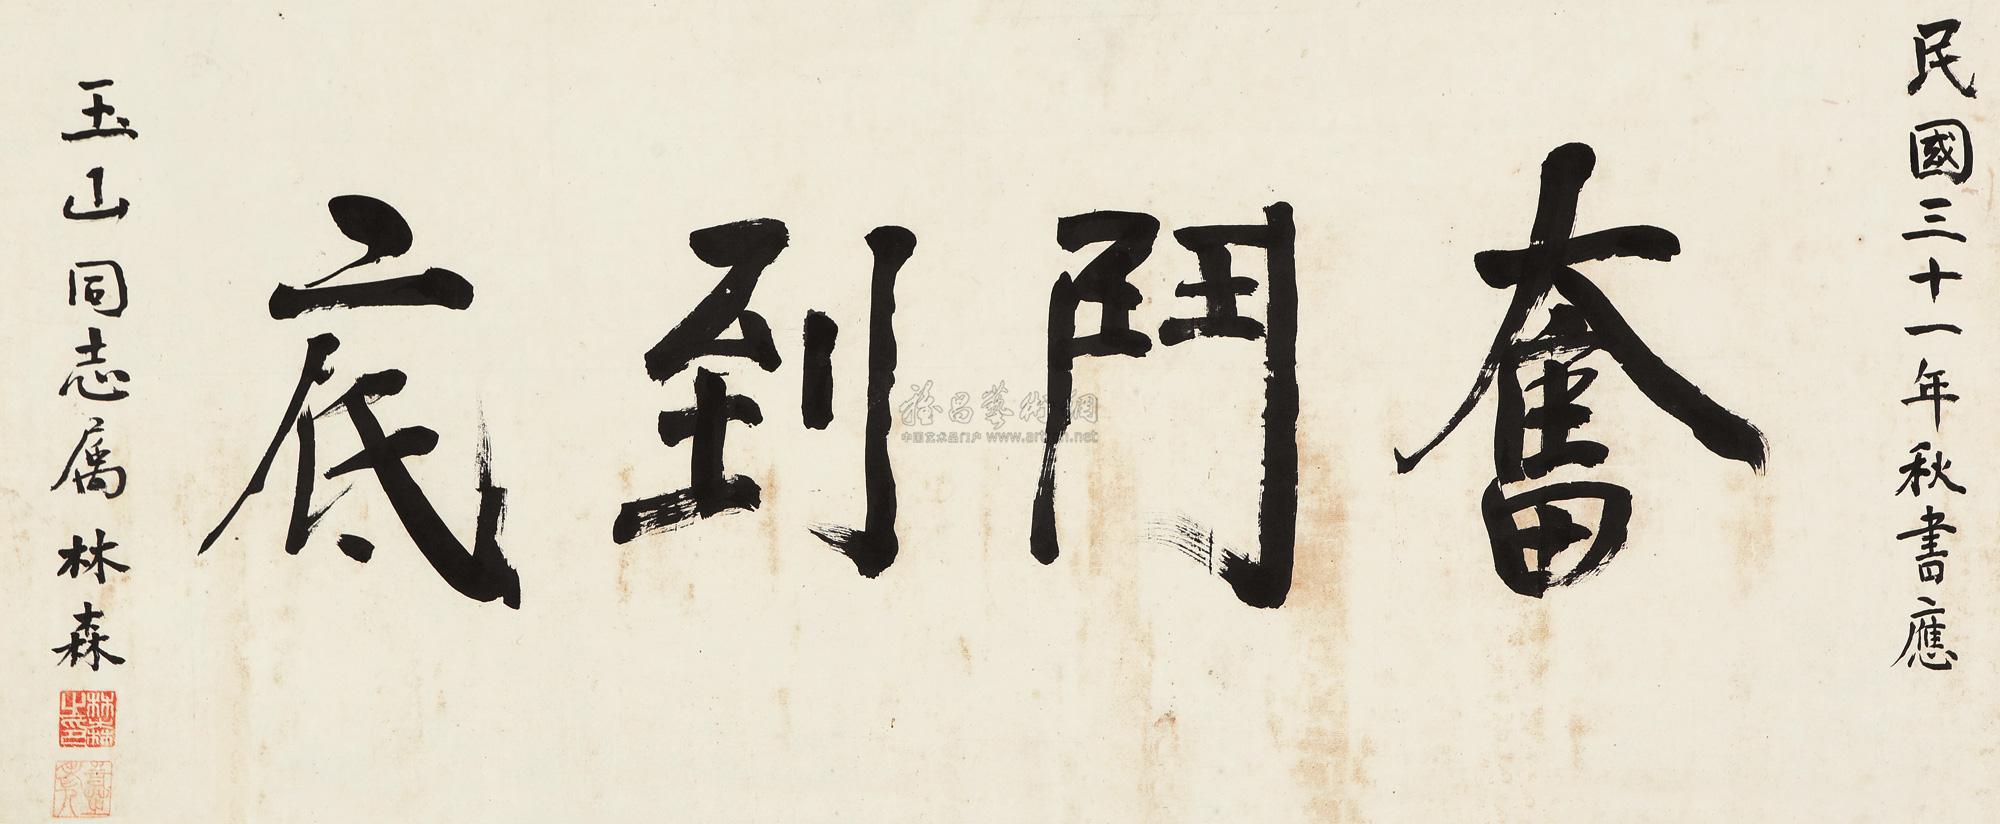 民國三十一年秋書應
奮鬥到底
玉山同志属 林森
林森之印
雅昌藝術網
中国艺术品门户 www.artron.net